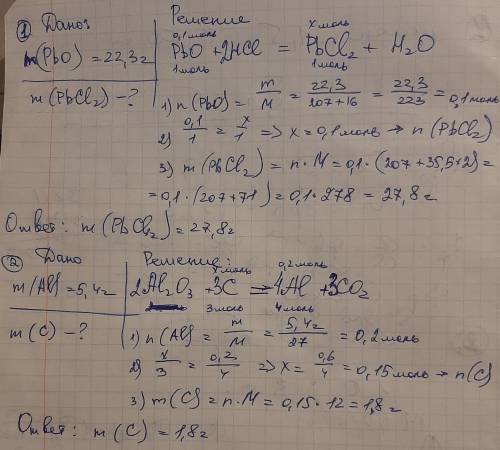 ① Дано:
m(PbO) = 22,3г
m(PbCl₂) - ?
Решение
0,1моль x моль
PbO + 2HCl = PbCl₂ + H₂O
1моль 1моль
1) n(PbO) = m/M = 22,3/(207+16) = 22,3/223 = 0,1моль
2) 0,1/1 = x/1 => x = 0,1моль → n(PbCl₂)
3) m(PbCl₂) = n·M = 0,1·(207+35,5×2) =
= 0,1·(207+71) = 0,1·278 = 27,8г
Ответ: m(PbCl₂) = 27,8г
② Дано
m(Al) = 5,4г
m(C) - ?
Решение:
x моль 0,2моль
2Al₂O₃ + 3C = 4Al + 3CO₂
3моль 4моль
1) n(Al) = m/M = 5,4г/27 = 0,2моль
2) x/3 = 0,2/4 => x = 0,6/4 = 0,15моль → n(C)
3) m(C) = n·M = 0,15·12 = 1,8г
Ответ: m(C) = 1,8г